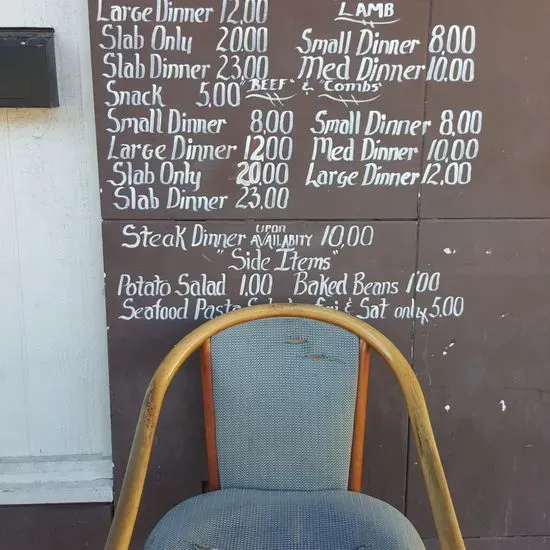 Large Dinner 12,00
Slab Only 20.00
Slab Dinner 23,00
LAMB
Small Dinner 8,00
Med Dinner 10.00
"BEEF" & "Combs"
Snack 5,00
Small Dinner 8,00
Large Dinner 12.00
Slab Only 20.00
Slab Dinner 23,00
Small Dinner 8.00
Med Dinner 10,00
Large Dinner 12.00
Steak Dinner UPON AVAILABITY 10,00
"Side Items"
Potato Salad 1,00 Baked Beans 1'00
Seafood Pasta Salad Fri & Sat only 5.00